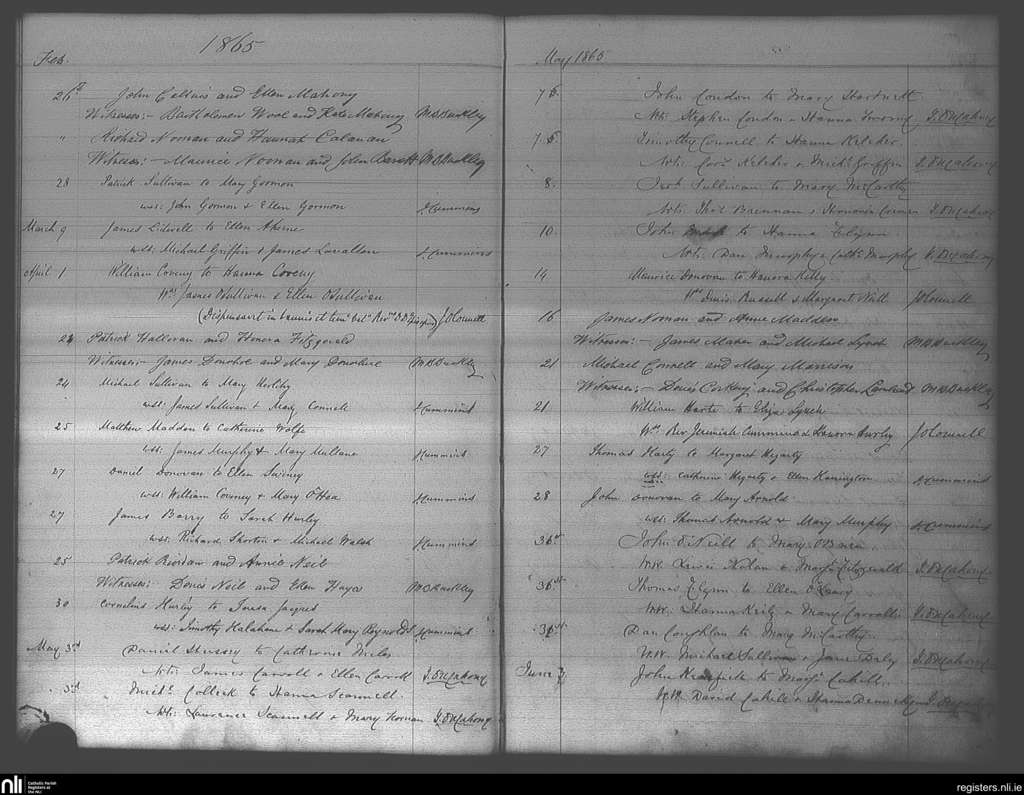 1865
Feb.
26th John Collins and Ellen Mahony
Witnesses:- Bartholomew Wool and Kate Mahony MB Buckley
" Richard Noonan and Hannah Calanan
Witnesses:- Maurice Noonan and John Barrett MB Buckley
28 Patrick Sullivan to Mary Gorman
wss: John Gorman & Ellen Gorman J. Cummins
March 9 James Lidwell to Ellen Aherne
wss. Michael Griffin & James Lavallen J. Cummins
April 1 William Coveny to Hanna Coveny
Ws James OSullivan & Ellen OSullivan
(Dispensavit in J OConnell
Patrick Halloran and Honora Fitzgerald
Witnesses:- James Donohoe and Mary Donohoe MB Buckley
24 Michael Sullivan to Mary Herlihy
wss: James Sullivan & Mary Connell J Cummins
25 Matthew Madden to Catherine Wolfe
wss: James Murphy & Mary Mullane J Cummins
27 Daniel Donovan to Ellen Swiney
wss: William Coveney & Mary O'Hea J Cummins
27 James Barry to Sarah Hurley
wss: Richard Shorten & Michael Walsh J Cummins
25 Patrick Riordan and Annie Neil
Witnesses: Denis Neil and Ellen Hayes MB Buckley
30 Cornelius Hurley to Teresa
wss: Timothy Halahane & Sarah Mary Reynolds J Cummins
May 3rd Daniel to Catherine Miles
Wts: James Carroll & Ellen Carroll J. O'Mahony
3rd Michl. to Hanna Scannell
Wts: Laurence Scannell & Mary Noonan J. O'Mahony
May 1865
7 John Condon to Mary Hartnett
Wts: Stephen Condon & Hanna J. O'Mahony
7 Timothy Connell to Hanna Kelleher
Wts: Kelleher & Michl. Griffin J. O'Mahony
8. Sullivan to Mary McCarthy
Wts: Brennan & Honora J. O'Mahony
10 John to Hanna Flynn
Wts: Dan Murphy & Cathe. Murphy J. O'Mahony
14 Maurice Donovan to Hanora Kelly
Ws Denis Russell & Margaret Wall J OConnell
16 James Noonan and Anne Madden
Witnesses:- James Maher and Michael Lynch MB Buckley
21 Michael Connell and Mary Morrison
Witnesses:- Denis Corkery and Christopher MB Buckley
21 William Harte to Eliza Lynch
Ws Rev Jeremiah Cummins & Hanora Hurley J OConnell
27 Thomas Harty to Margaret Hegarty
wss: Catherine Hegarty & Ellen J Cummins
28 John Donovan to Mary Arnold
wss: Thomas Arnold & Mary Murphy J Cummins
John O'Neill to Mary O'Brien
Ws. Nolan & Margt Fitzgerald J. O'Mahony
Thomas Flynn to Ellen O'Leary
Hanna & Mary Carroll J. O'Mahony
Dan Coughlan to Mary McCarthy
Michael Sullivan & Jane Daly J. O'Mahony
June John to Margt Cahill
David Cahill & Hanna
nli Catholic Parish
Registers at
the NLI
registers.nli.ie